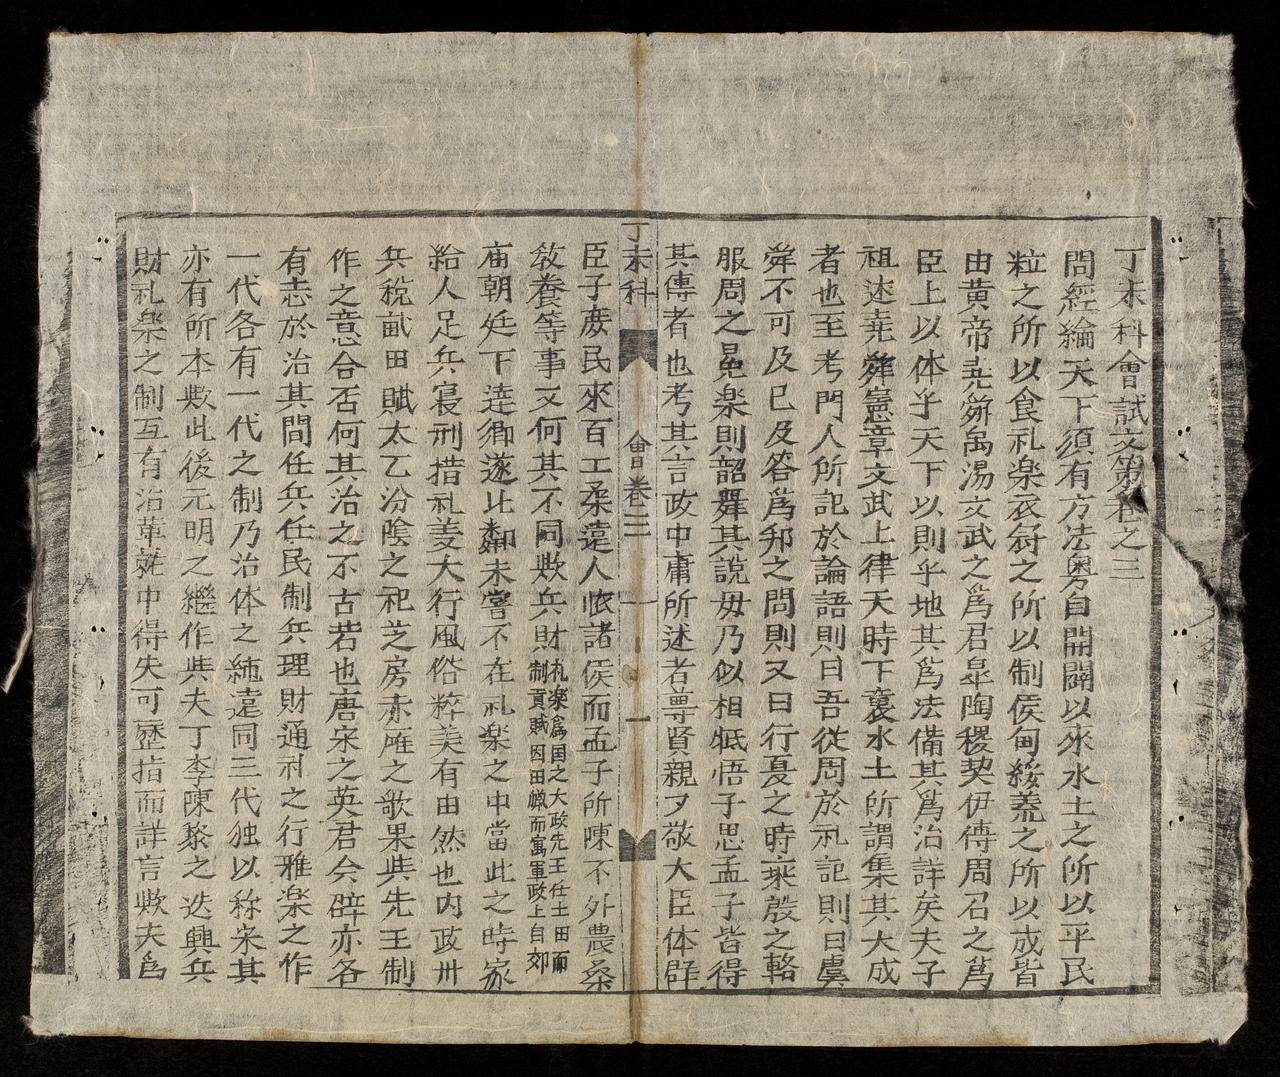 丁未科會試文第卷之三
問經綸天下須有方法粤自開闢以來水土之所以平民
粒之所以食礼楽衣冠之所以制侯甸綏荒之所以成皆
由黄帝尭舜禹湯文武之爲君皐陶稷契伊傅周召之爲
臣上以体乎天下以則乎地其爲法備其爲治詳矣夫子
祖述尭舜憲章文武上律天時下襲水土所謂集其大成
者也至考門人所記於論語則曰吾従周於礼記則曰虞
舜不可及已及答爲邦之問則又曰行夏之時乘殷之輅
服周之冕楽則韶舞其說毋乃似相牴悟子思孟子皆得
其傳者也考其言政中庸所述者尊賢親〻敬大臣体群
丁未科 會卷三 一
臣子庶民來百工柔遠人懐諸侯而孟子所陳不外農桑
教養等事又何其不同歟兵財礼楽爲国之大政先王任土田而制貢賦因田蒐而寓軍政上自郊
庙朝廷下逹鄉遂比鄰未嘗不在礼楽之中當此之時家
給人足兵寝刑措礼羙大行風俗粹美有由然也内政州
兵稅畝田賦太乙汾陰之祀芝房赤雁之歌果與先王制
作之意合否何其治之不古若也唐宋之英君令辟亦各
有志於治其間任兵任民制兵理財通礼之行雅楽之作
一代各有一代之制乃治体之純遠同三代独以称宋其
亦有所本歟此後元明之繼作與夫丁李陳黎之迭興兵
財礼楽之制互有沿革就中得失可歷指而詳言歟夫爲